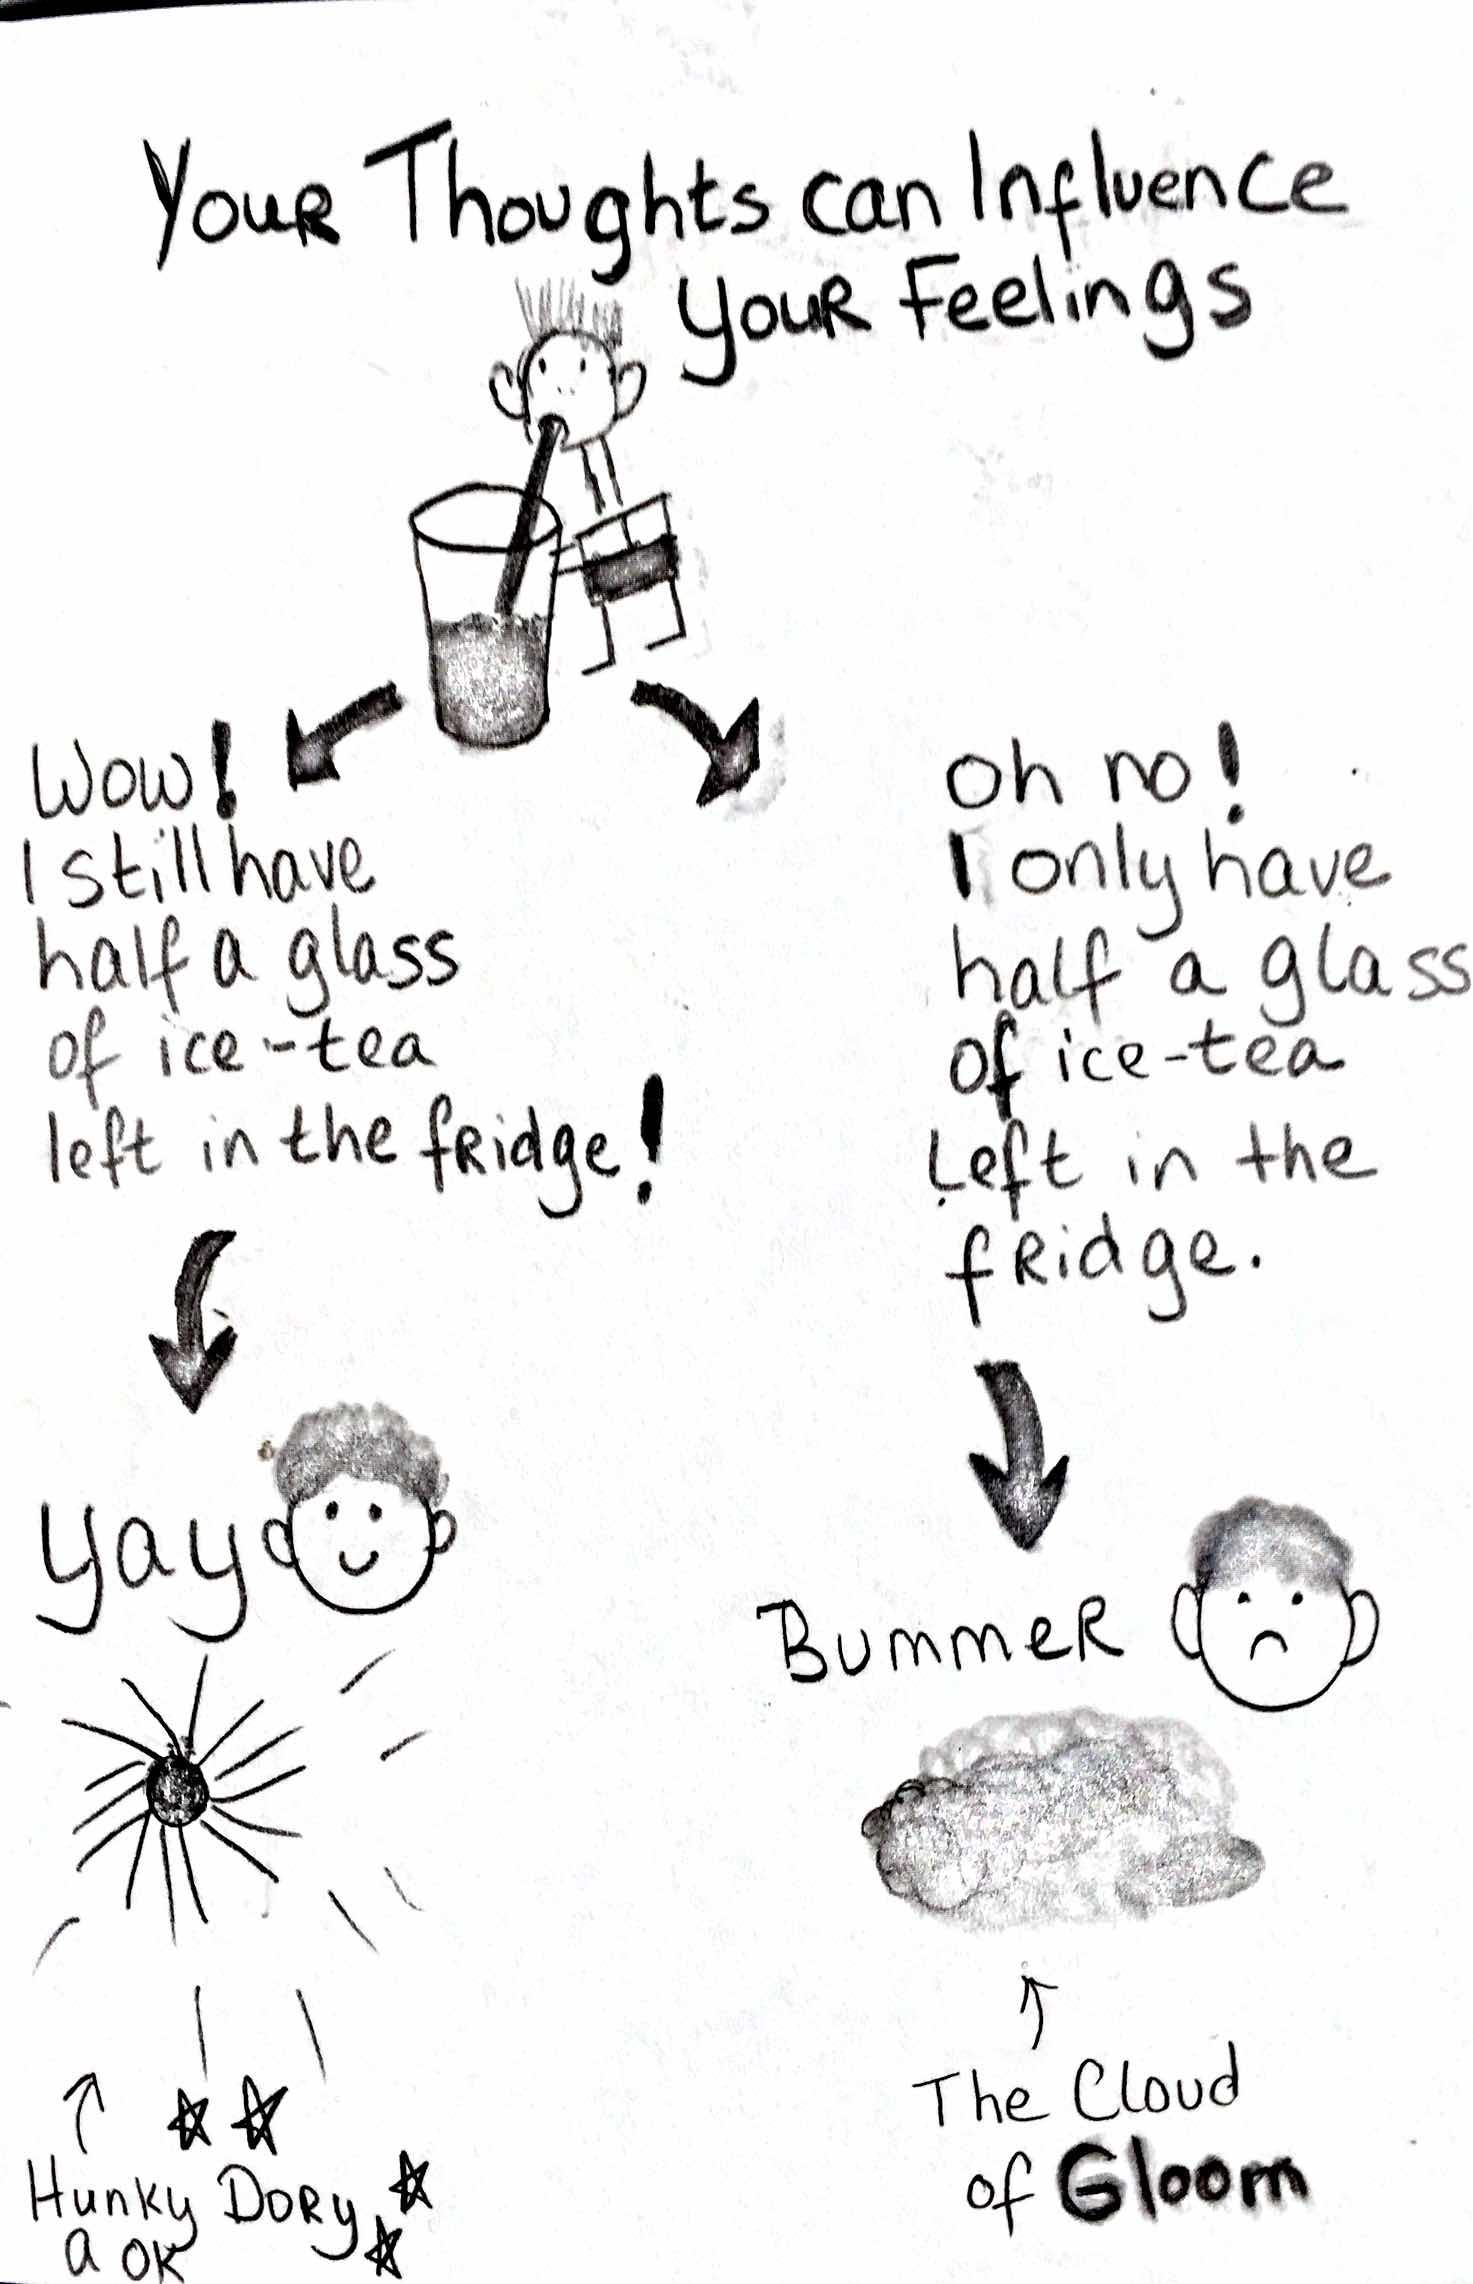 Your Thoughts can Influence
Your Feelings
Wow!
I still have
half a glass
of ice-tea
left in the fridge!
Yay
Hunky Dory
a OK
Oh no!
I only have
half a glass
of ice-tea
Left in the
fridge.
Bummer
The Cloud
of Gloom